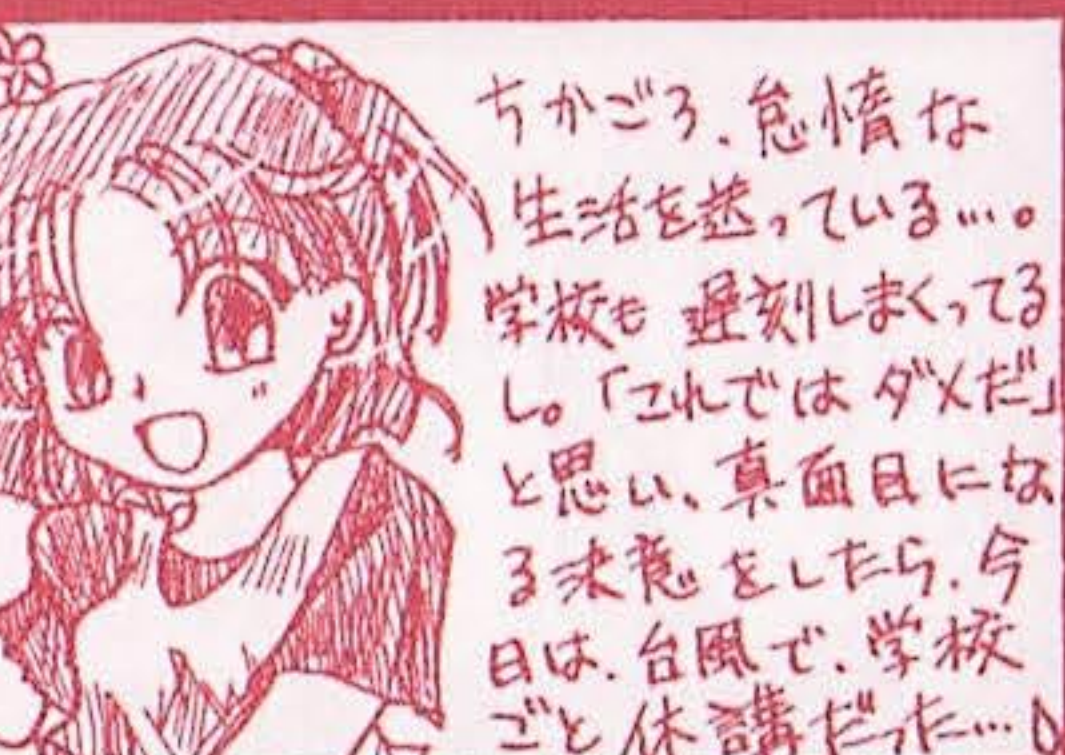 ちかごろ、怠惰な
生活を送っている…。
学校も遅刻しまくってる
し。「これではダメだ」
と思い、真面目にな
る決意をしたら、今
日は、台風で、学校
ごと休講だった…